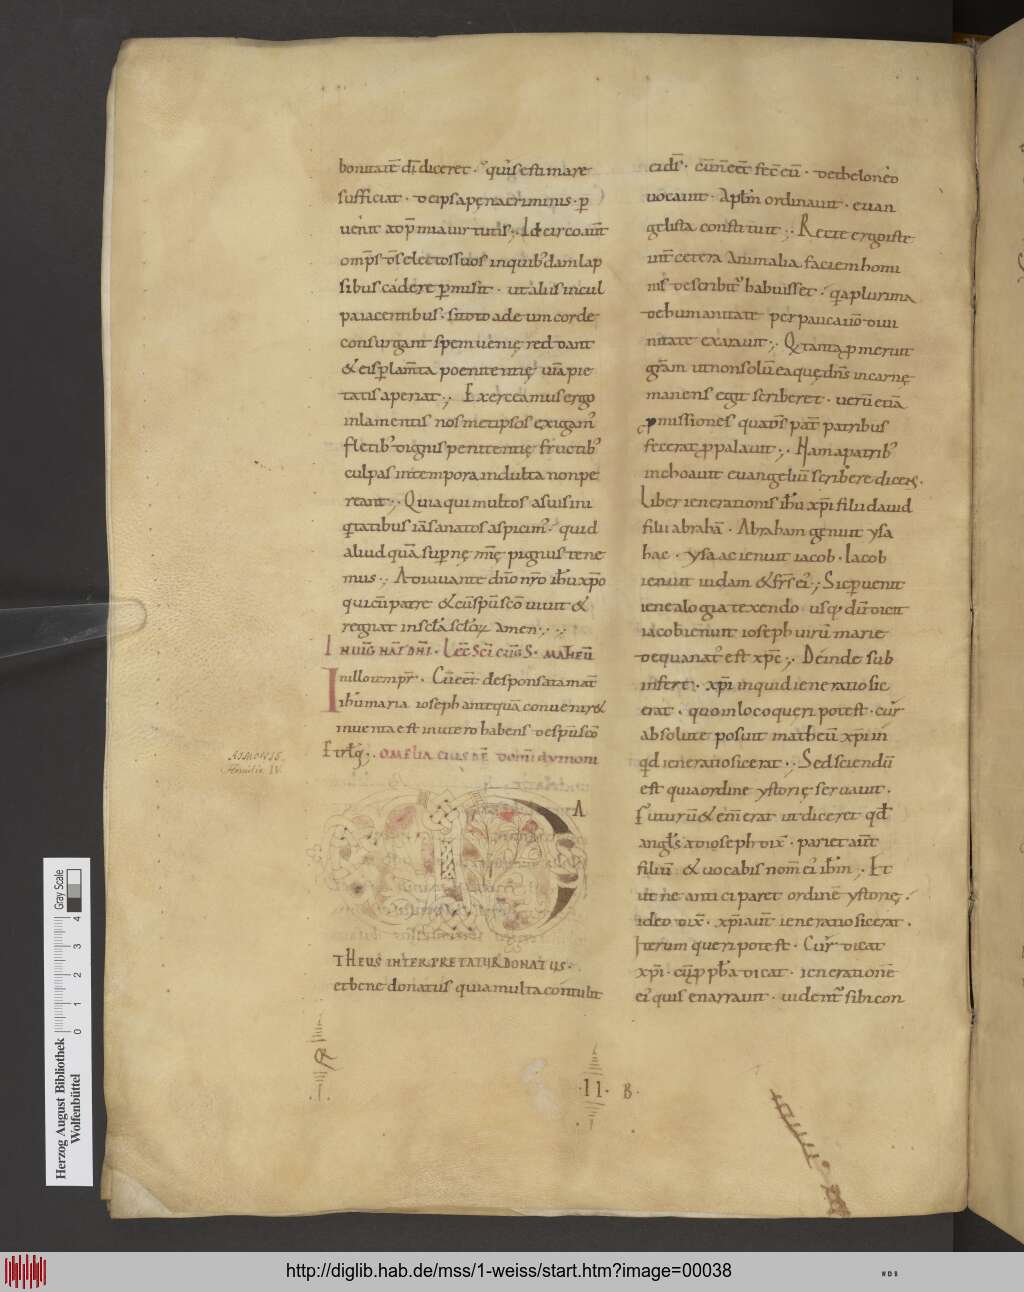 bonitatē dī diceret · quis estimare
sufficiat · De ipsa penacriminis · ꝑ
uenit ad p̄mia uirtutis ; Idcirco aut̄
omp̄s ds̄ electos suos inquib' dam lap
sibus cadere ꝑmisit · ut aliis in cul
pa iacentibus · si toto ad eum corde
consurgant spem uenię reddant
& eis ꝑ lam̄ta poenitentię uiā pie
tatis aperiat ; Exerceamus ergo
in lamentis nos metipsos exigam'
fletib' dignis penitentię fructib'
culpas in tempora indulta non pe
reant ; Quia qui multos a suis ini
q̄tatibus iā sanatos aspicim' · quid
aliud quā supernę mīę pignus tene
mus ; Adiuuante dn̄o nr̄o ihū xp̄o
qui cū patre & cū spū scō uiuit &
regnat in sc̄la sc̄loꝝ amen ;
IN UIG NAT DNI · LEC̄ SCI EUG S · MATHEŪ
In illo tempr̄ · Cū eet̄ desponsata mat̄
ihū maria ioseph antequā conuenire&
inuenta est in utero habens de spū scō
Et rlq̄ ; OMELIA EIUSDĒ DOMI DYMONI
AIMONIS
Homilia IV
A
THEUS INTERPRETATUR DONATUS ·
et bene donatus quia multa contulit
cidr̄ · cūn eet̄ fec̄ cū · De theloneo
uocauit · Aplm̄ ordinauit · euan
gelista constituit ; Recte ergo iste
int̄ cetera animalia faciem homi
nis describit' habuisset · q̄a plurima
de humanitate per pauca uō diui
nitate exarauit ; Q tantā ꝑmeruit
grām ut non solū ea quę dn̄s in carne
manens egit scriberet · uerū etiā
ꝓmissiones quas dr̄ pat̄ patribus
fecerat ꝓpalauit ; Nam a patrib'
inchoauit euangeliū scribere dicens ·
Liber ienerationis ihū xp̄i filii dauid
filii abrahā · Abraham genuit ysa
hac · ysaac ienuit iacob · Iacob
ienuit iudam & frs̄ ei' ; Sic ꝑuenit
ienealogia texendo usq; dū dicit
iacob ienuit ioseph uirū marie
de qua nat' est xpc̄ ; Deinde sub
infert · xp̄i inquid ieneratio sic
erat · quo in loco queri potest · cur
absolute posuit matheū xp̄i in
qd̄ ieneratio sic erat ; Sed sciendū
est quia ordine ystorię seruauit ·
Futurū & enī erat ut diceret qd̄
angls̄ ad ioseph dix̄ · pariet aut̄
filiū & uocabis nom̄ ei' ihm̄ ; Et
ut ne anticiparet ordinē ystorię ·
ideo dix̄ · xp̄i aut̄ ieneratio sic erat ·
Iterum queri potest · Cur dicat
xp̄i · cū ꝓph̄a dicat · ienerationē
ei' quis enarrauit · uident' sibi con
·II· B·
Herzog August Bibliothek
Wolfenbüttel
0 1 2 3 4 Gray Scale
http://diglib.hab.de/mss/1-weiss/start.htm?image=00038